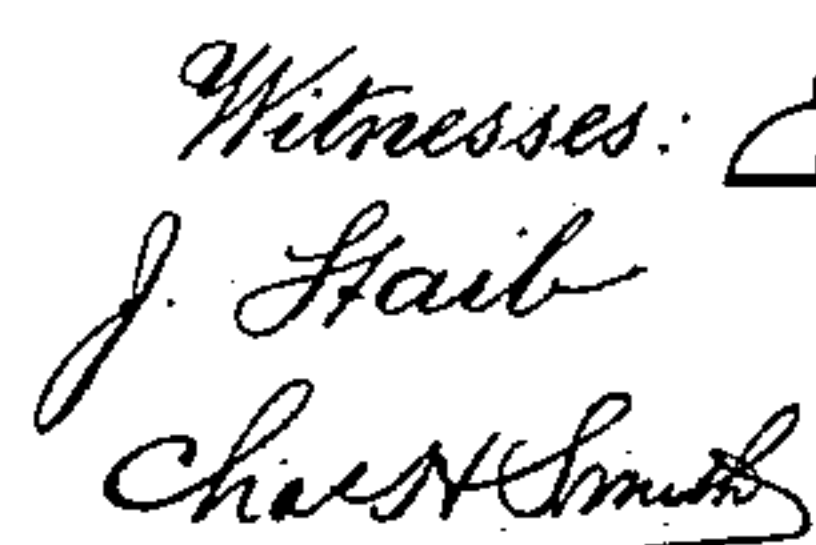 Witnesses:
J. Staib
Chas H Smith